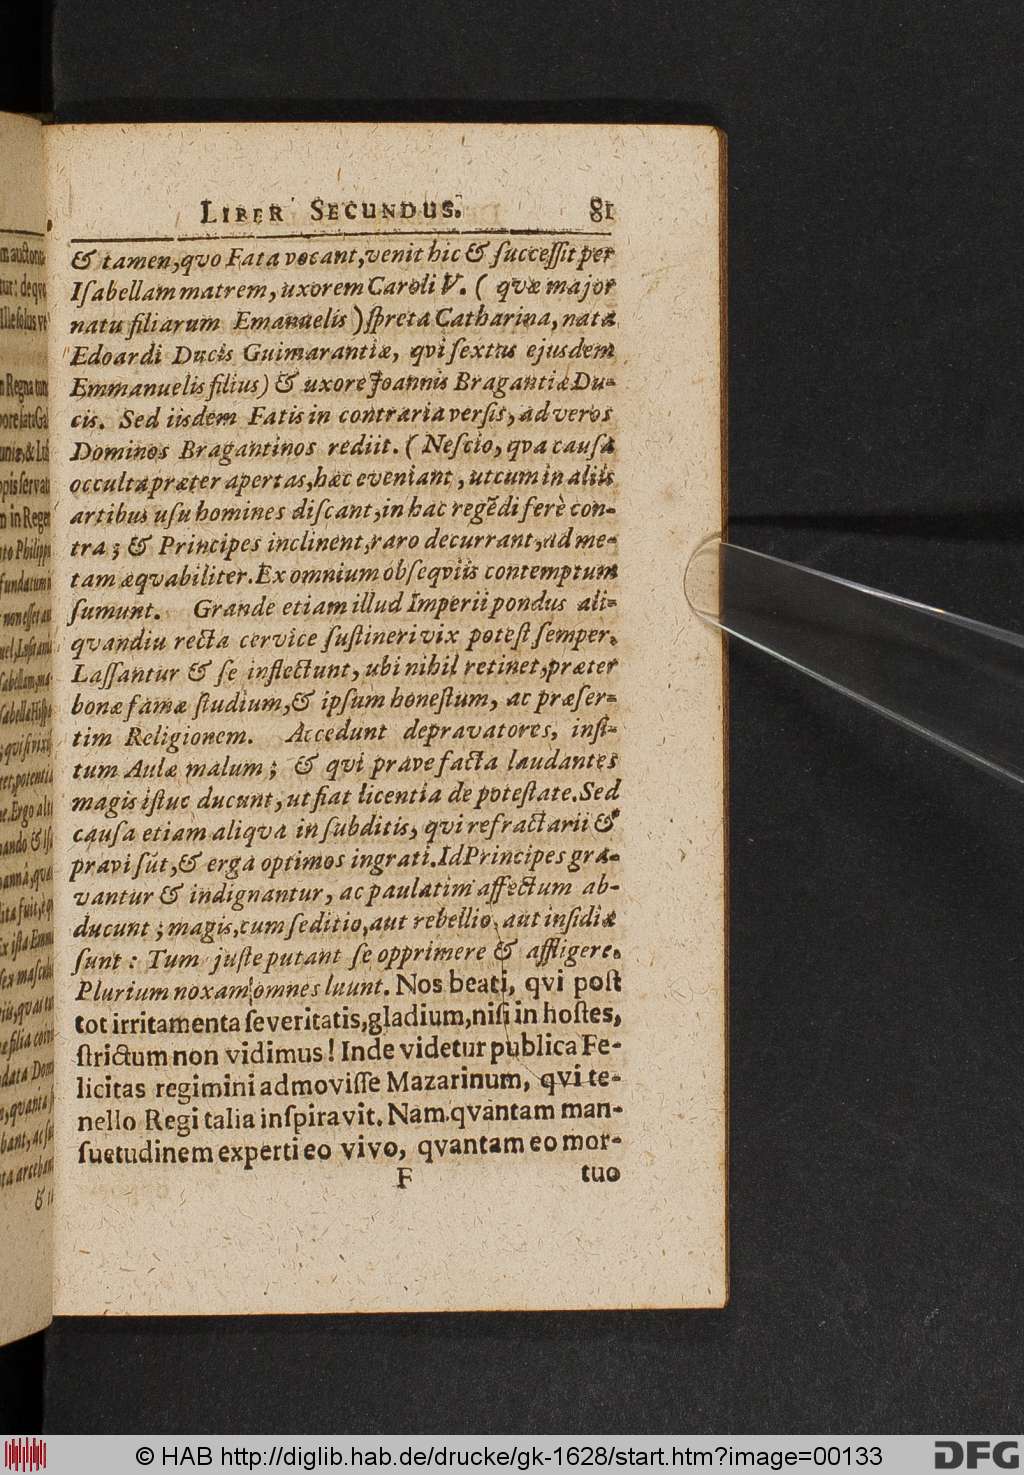 LIBER SECUNDUS. 81
& tamen, qvo Fata vocant, venit hic & ſucceſſit per
Iſabellam matrem, uxorem Caroli V. ( quæ major
natu filiarum Emanuelis ) ſpreta Catharina, nata
Edoardi Ducis Guimarantiæ, qvi ſextus ejusdem
Emmanuelis filius) & uxore Joannis Bragantiæ Du-
cis. Sed iisdem Fatis in contraria verſis, ad veros
Dominos Bragantinos rediit. ( Neſcio, qva cauſa
occulta præter apertas, hæc eveniant, ut cum in aliis
artibus uſu homines diſcant, in hac regēdi ferè con-
tra; & Principes inclinent, raro decurrant, ad me-
tam æqvabiliter. Ex omnium obſeqviis contemptum
ſumunt. Grande etiam illud Imperii pondus ali-
qvandiu recta cervice ſuſtineri vix poteſt ſemper.
Laſſantur & ſe inflectunt, ubi nihil retinet, præter
bonæ famæ ſtudium, & ipſum honeſtum, ac præſer-
tim Religionem. Accedunt depravatores, inſi-
tum Aulæ malum; & qui prave facta laudantes
magis iſtuc ducunt, ut fiat licentia de poteſtate. Sed
cauſa etiam aliqva in ſubditis, qvi refractarii &
pravi ſūt, & erga optimos ingrati. Id Principes gra-
vantur & indignantur, ac paulatim affectum ab-
ducunt; magis, cum ſeditio, aut rebellio, aut inſidiæ
ſunt: Tum juſte putant ſe opprimere & affligere.
Plurium noxam omnes luunt. Nos beati, qvi poſt
tot irritamenta ſeveritatis, gladium, niſi in hoſtes,
ſtrictum non vidimus! Inde videtur publica Fe-
licitas regimini admoviſſe Mazarinum, qvi te-
nello Regi talia inſpiravit. Nam qvantam man-
ſuetudinem experti eo vivo, qvantam eo mor-
F tuo
© HAB http://diglib.hab.de/drucke/gk-1628/start.htm?image=00133
DFG